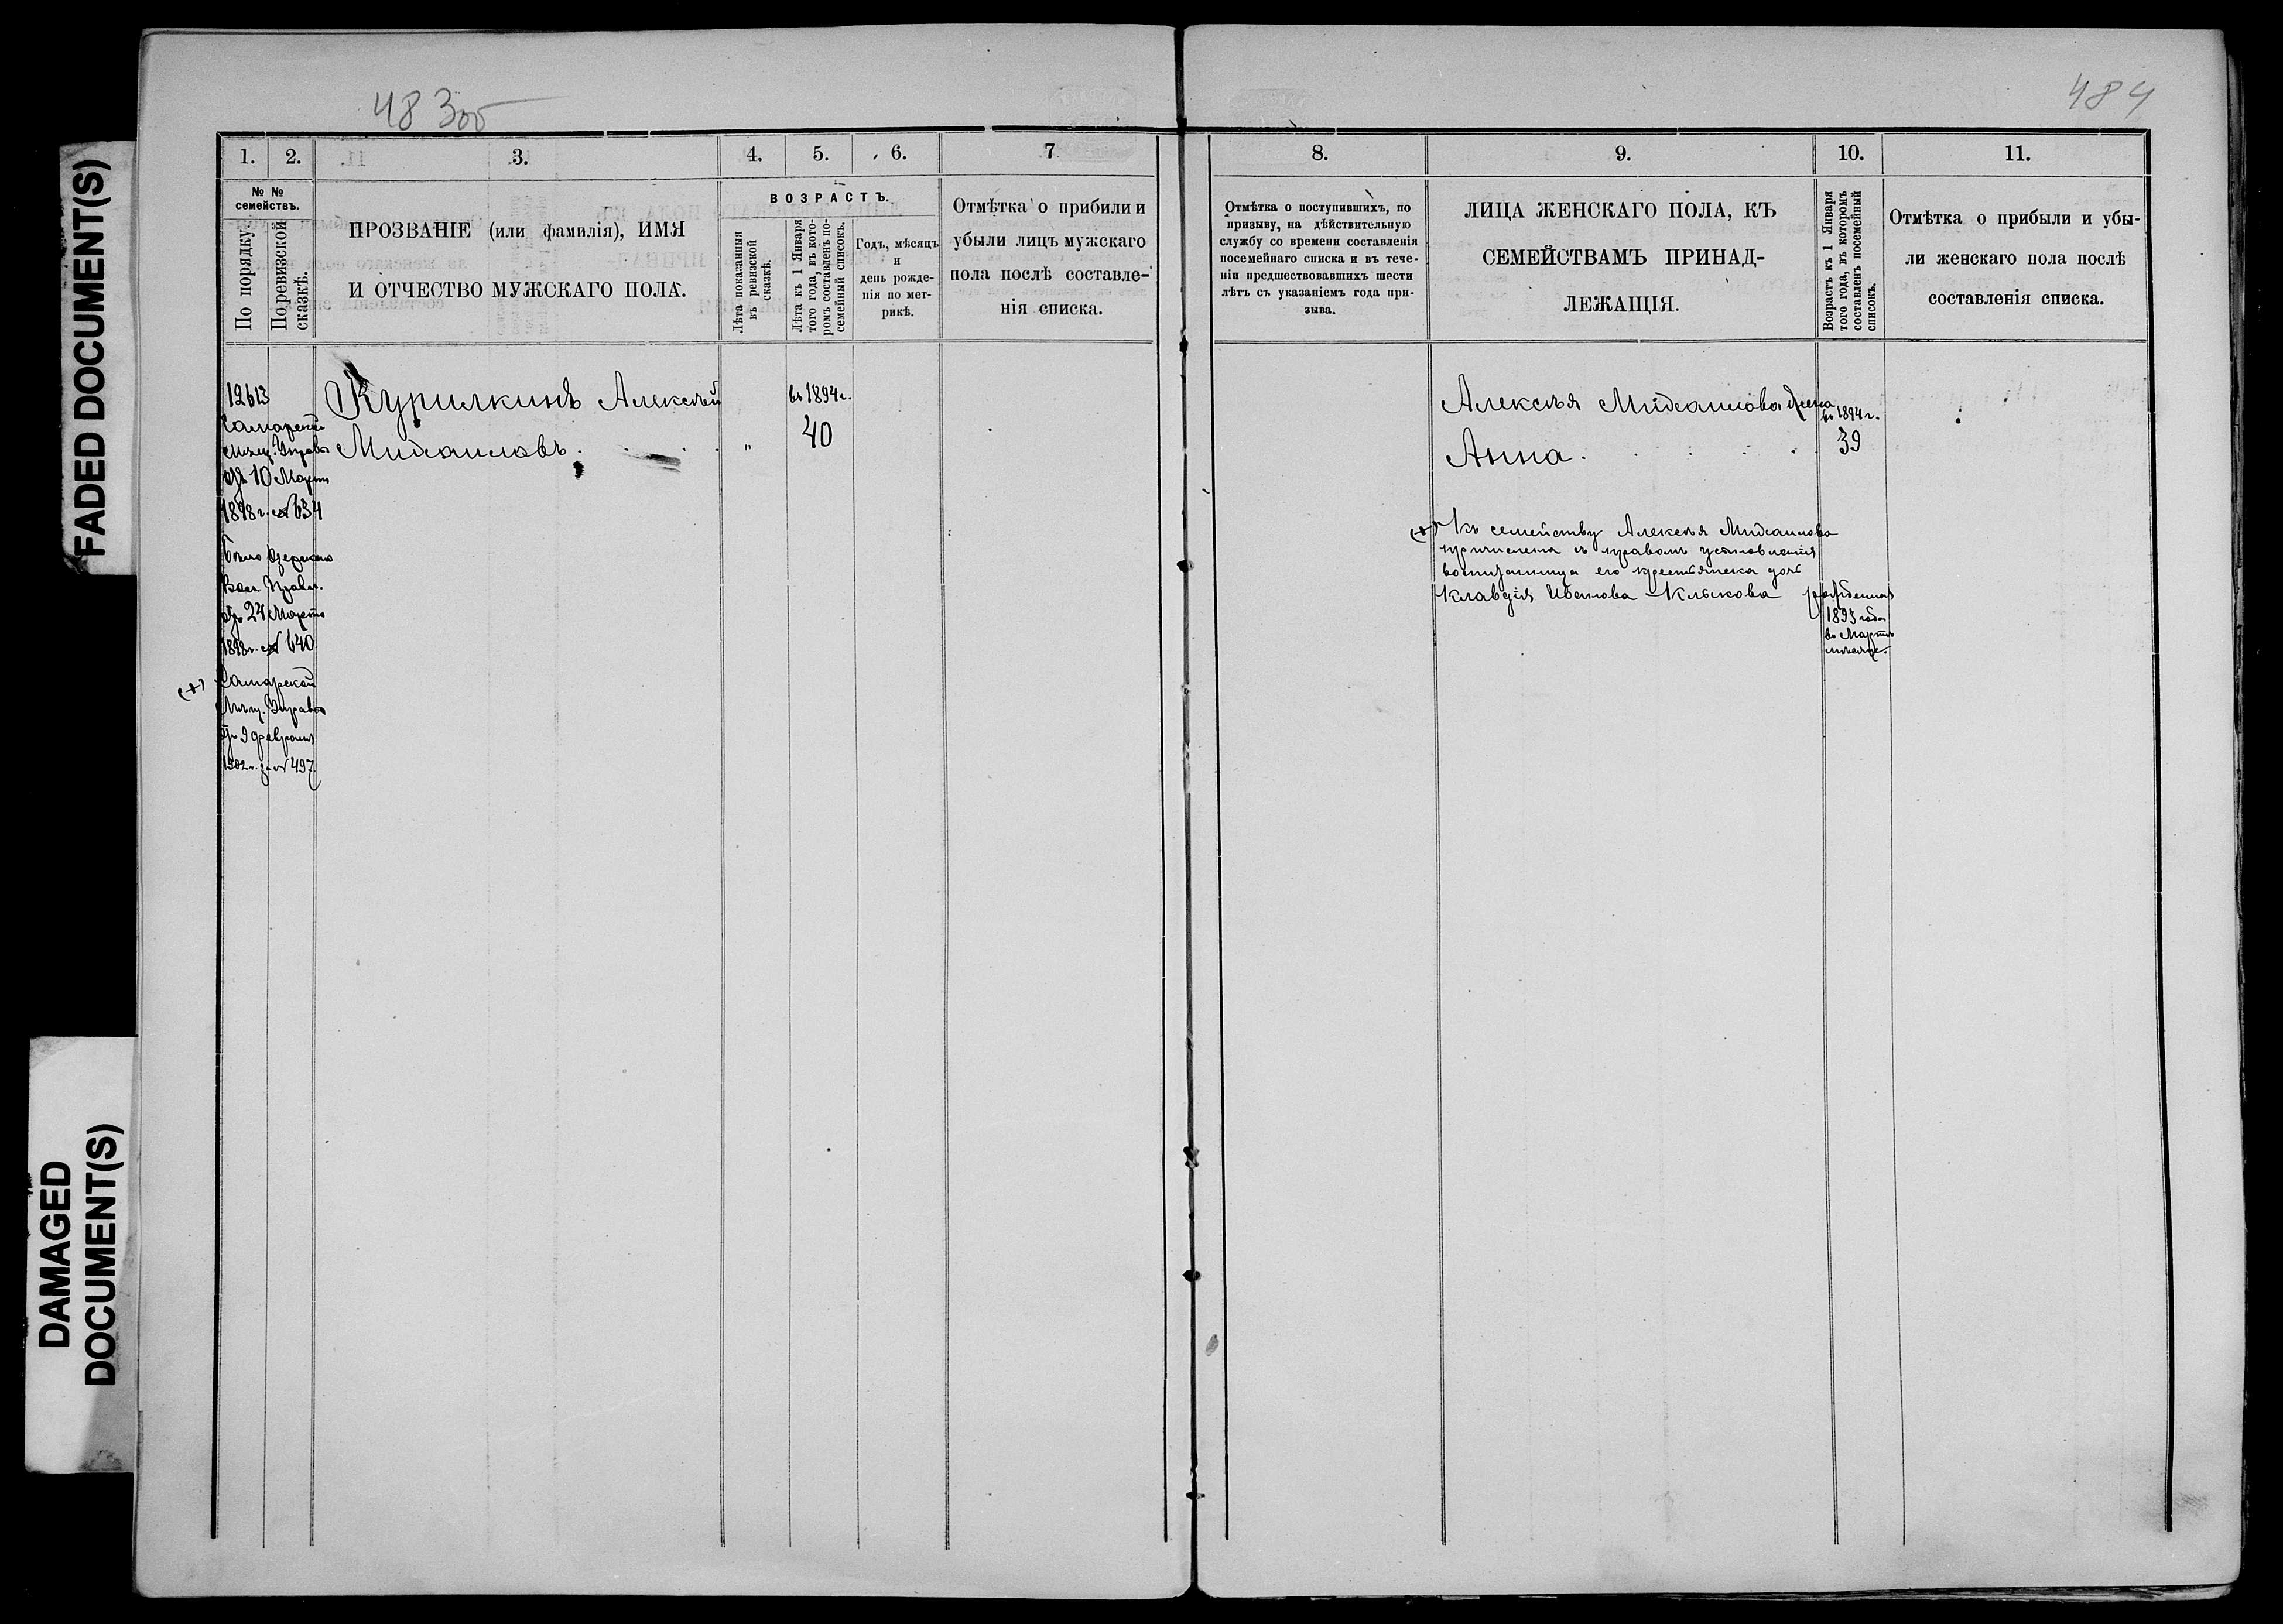 FADED DOCUMENT(S)
DAMAGED
DOCUMENT(S)
483об
1.
2.
3.
4.
5.
6.
7
№ №
семействъ.
По порядку.
По ревизской
сказкѣ.
ПРОЗВАНІЕ (или фамилія), ИМЯ
И ОТЧЕСТВО МУЖСКАГО ПОЛА.
ВОЗРАСТЪ.
Лѣта показанныя
въ ревизской
сказкѣ.
Лѣта къ 1 Января
того года, въ кото-
ромъ составленъ по-
семейный списокъ.
Годъ, мѣсяцъ
и
день рожде-
нія по мет-
рикѣ.
Отмѣтка о прибыли и
убыли лицъ мужскаго
пола послѣ составле-
нія списка.
12613
Самарской
мѣщ. Управы
отъ 10 Марта
1898 г. № 634
Бѣло Озерскаго
Вол. Правл.
отъ 24 Марта
1898 г. № 640
(+) Самарской
Мѣщ. Управы
отъ 9 февраля
1902 г. за № 497.
Курилкинъ Алексѣй
Михаиловъ.
"
въ 1894 г.
40
484
8.
9.
10.
11.
Отмѣтка о поступившихъ, по
призыву, на дѣйствительную
службу со времени составленія
посемейнаго списка и въ тече-
ніи предшествовавшихъ шести
лѣтъ съ указаніемъ года при-
зыва.
ЛИЦА ЖЕНСКАГО ПОЛА, КЪ
СЕМЕЙСТВАМЪ ПРИНАД-
ЛЕЖАЩІЯ.
Возрастъ къ 1 Января
того года, въ которомъ
составленъ посемейный
списокъ.
Отмѣтка о прибыли и убы-
ли женскаго пола послѣ
составленія списка.
Алексѣя Михаилова жена
Анна
въ 1894 г.
39
(+) Къ семейству Алексѣя Михаилова
причислена съ правомъ усыновленія
воспитанница его крестьянска дочь
Клавдія Иванова Клыкова рожденная
1893 года
въ Мартѣ
мѣсяце.